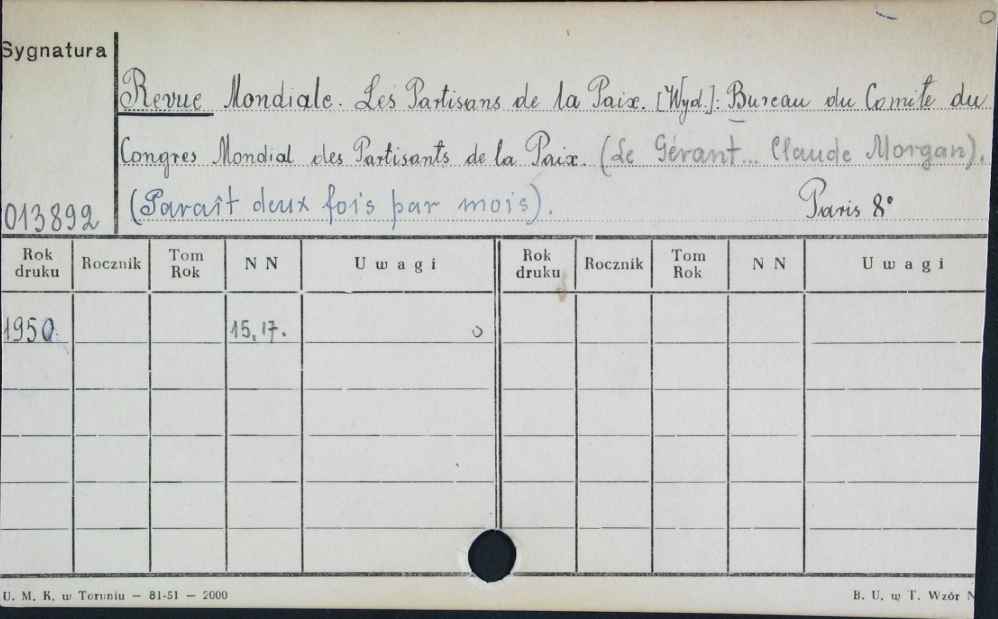 Sygnatura
Revue Mondiale. Les Partisans de la Paix. [Wyd.]: Bureau du Comité du
Congres Mondial des Partisants de la Paix. (Le Gérant... Claude Morgan).
013892 (Paraît deux fois par mois). Paris 8°
Rok druku Rocznik Tom Rok NN Uwagi Rok druku Rocznik Tom Rok NN Uwagi
1950. 15, 17. o
U. M. K. w Toruniu — 81-51 — 2000 B. U. w T. Wzór N